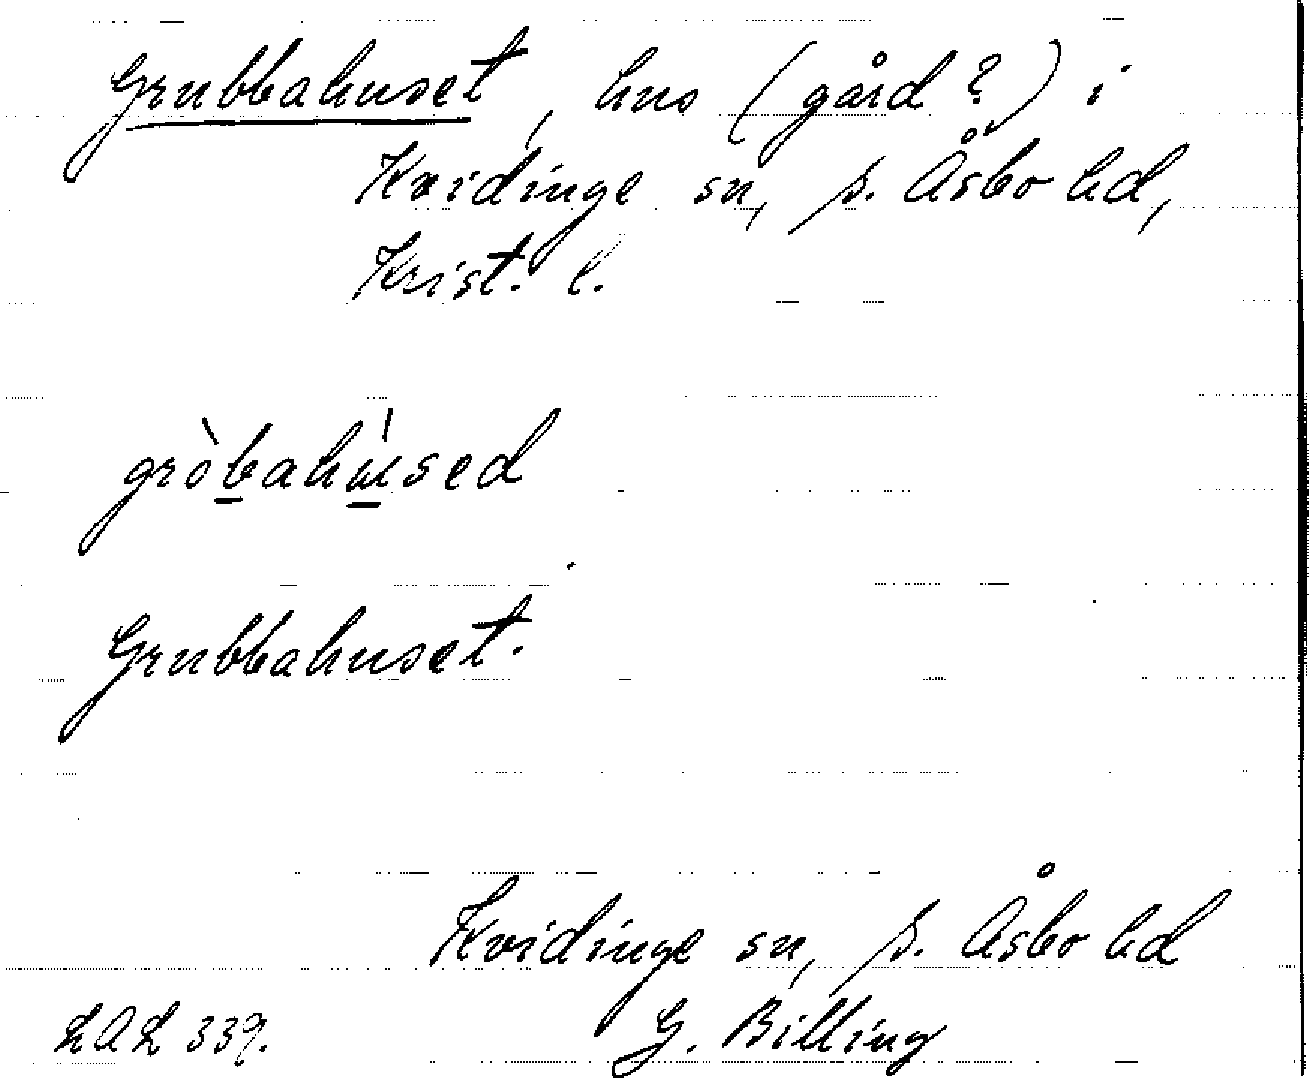 Grubbahuset, hus (gård?) i
Kvidinge sn, s. Åsbo hd,
Krist. l.
gròbahu̍sed
Grubbahuset.
Kvidinge sn, s. Åsbo hd
LAL 339. G. Billing